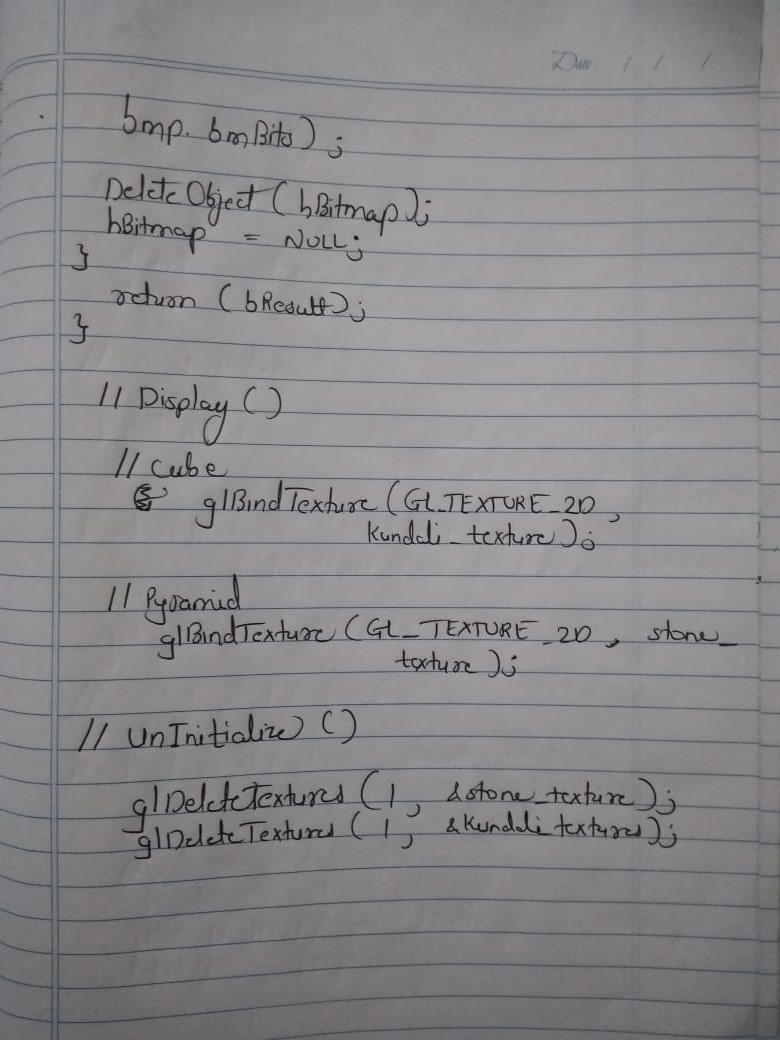 Date / / /
bmp. bmBits);
DeleteObject (hBitmap);
hBitmap = NULL;
}
return (bResult);
}
// Display ()
// Cube
glBindTexture (GL_TEXTURE_2D,
Kundali_texture);
// Pyramid
glBindTexture (GL_TEXTURE_2D, stone_
texture);
// UnInitialize ()
glDeleteTextures (1, &stone_texture);
glDeleteTextures (1, &Kundali textures);